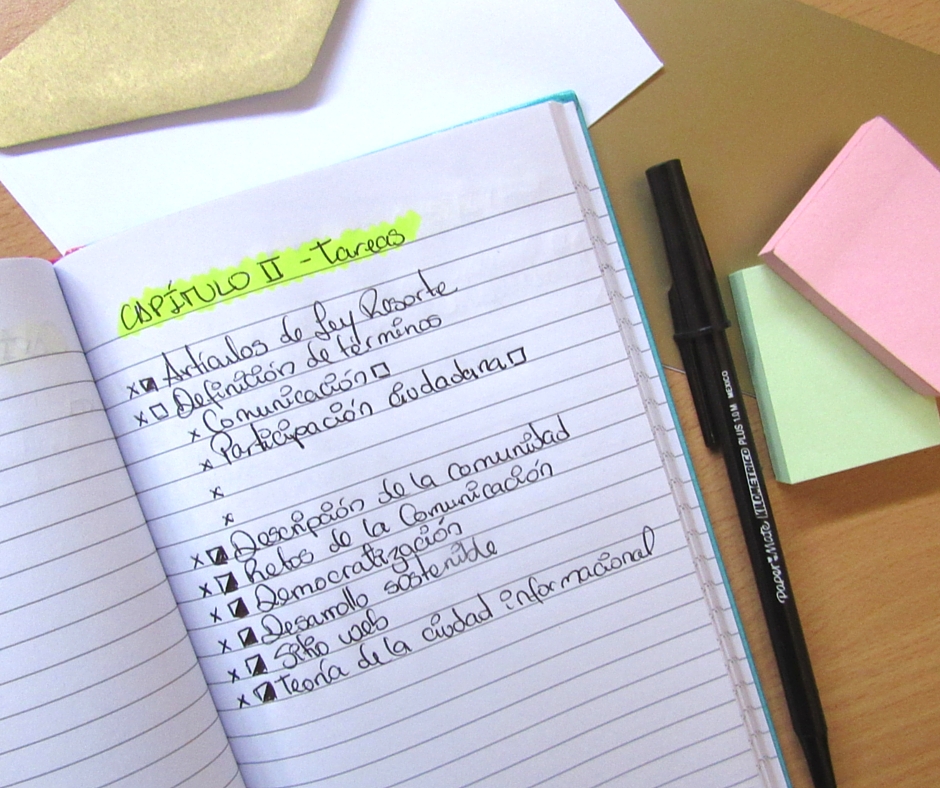 CAPÍTULO II - Tareas
x Artículos de Ley Resorte
x Definición de términos
x Comunicación
x Participación ciudadana
x
x
x Descripción de la comunidad
x Retos de la Comunicación
x Democratización
x Desarrollo sostenible
x Sitio web
x Teoría de la ciudad informacional
Paper Mate KILOMETRICO PLUS 1.0 M MEXICO